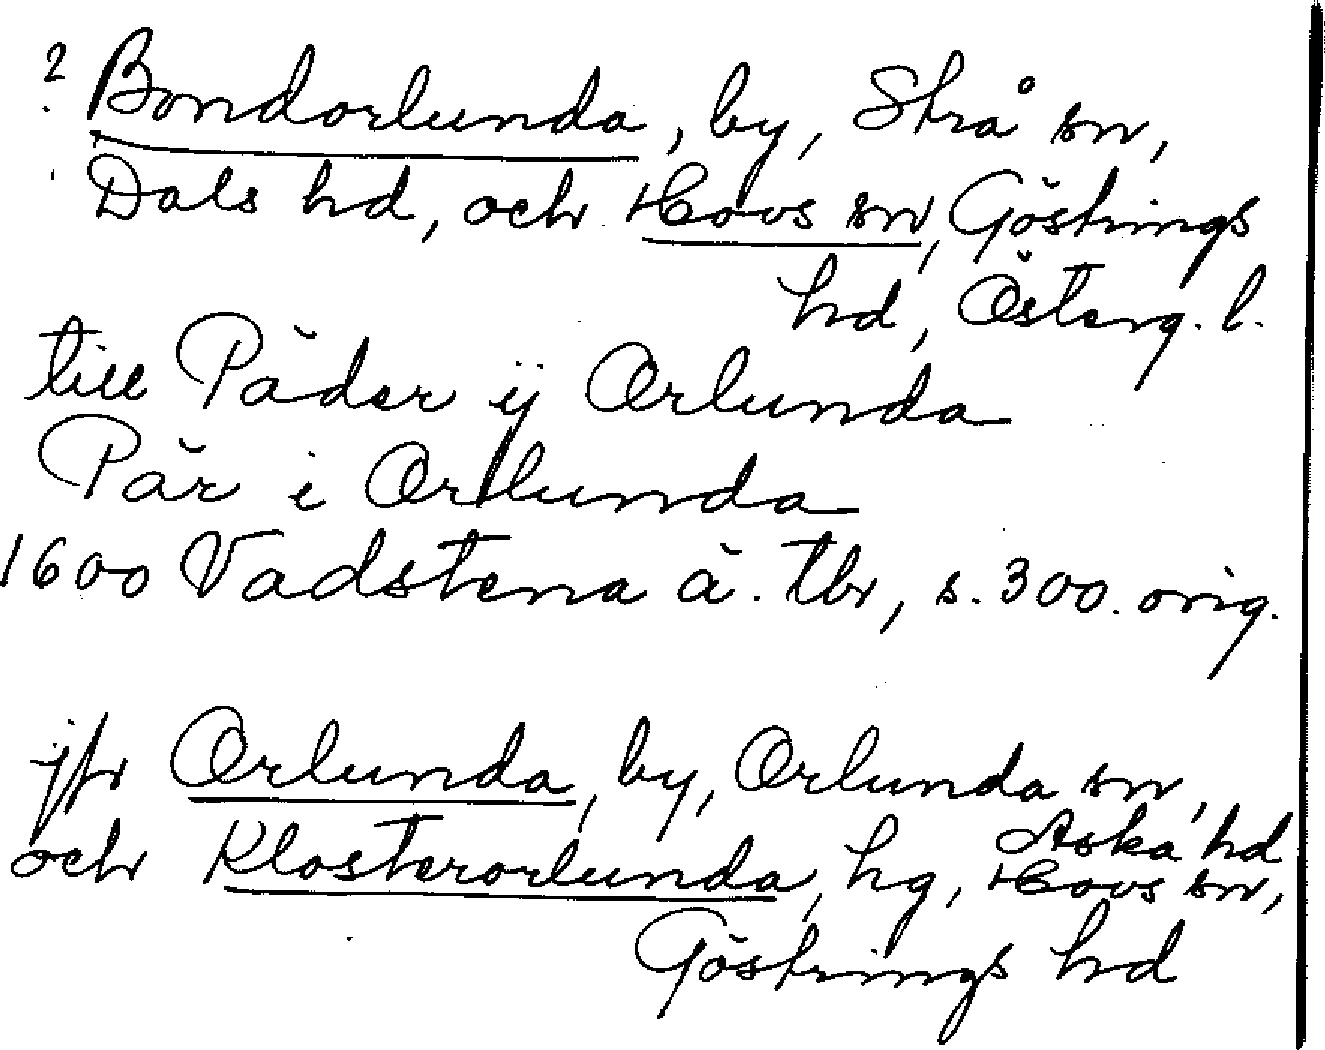 ? Bondorlunda, by, Strå sn,
Dals hd, och Hovs sn, Göstrings
hd, Österg. l.
till Päder ij Orlunda
Pär i Orlunda
1600 Vadstena ä. tbr, s. 300. orig.
jfr Orlunda, by, Orlunda sn,
Aska hd
och Klosterorlunda, hg, Hovs sn,
Göstrings hd